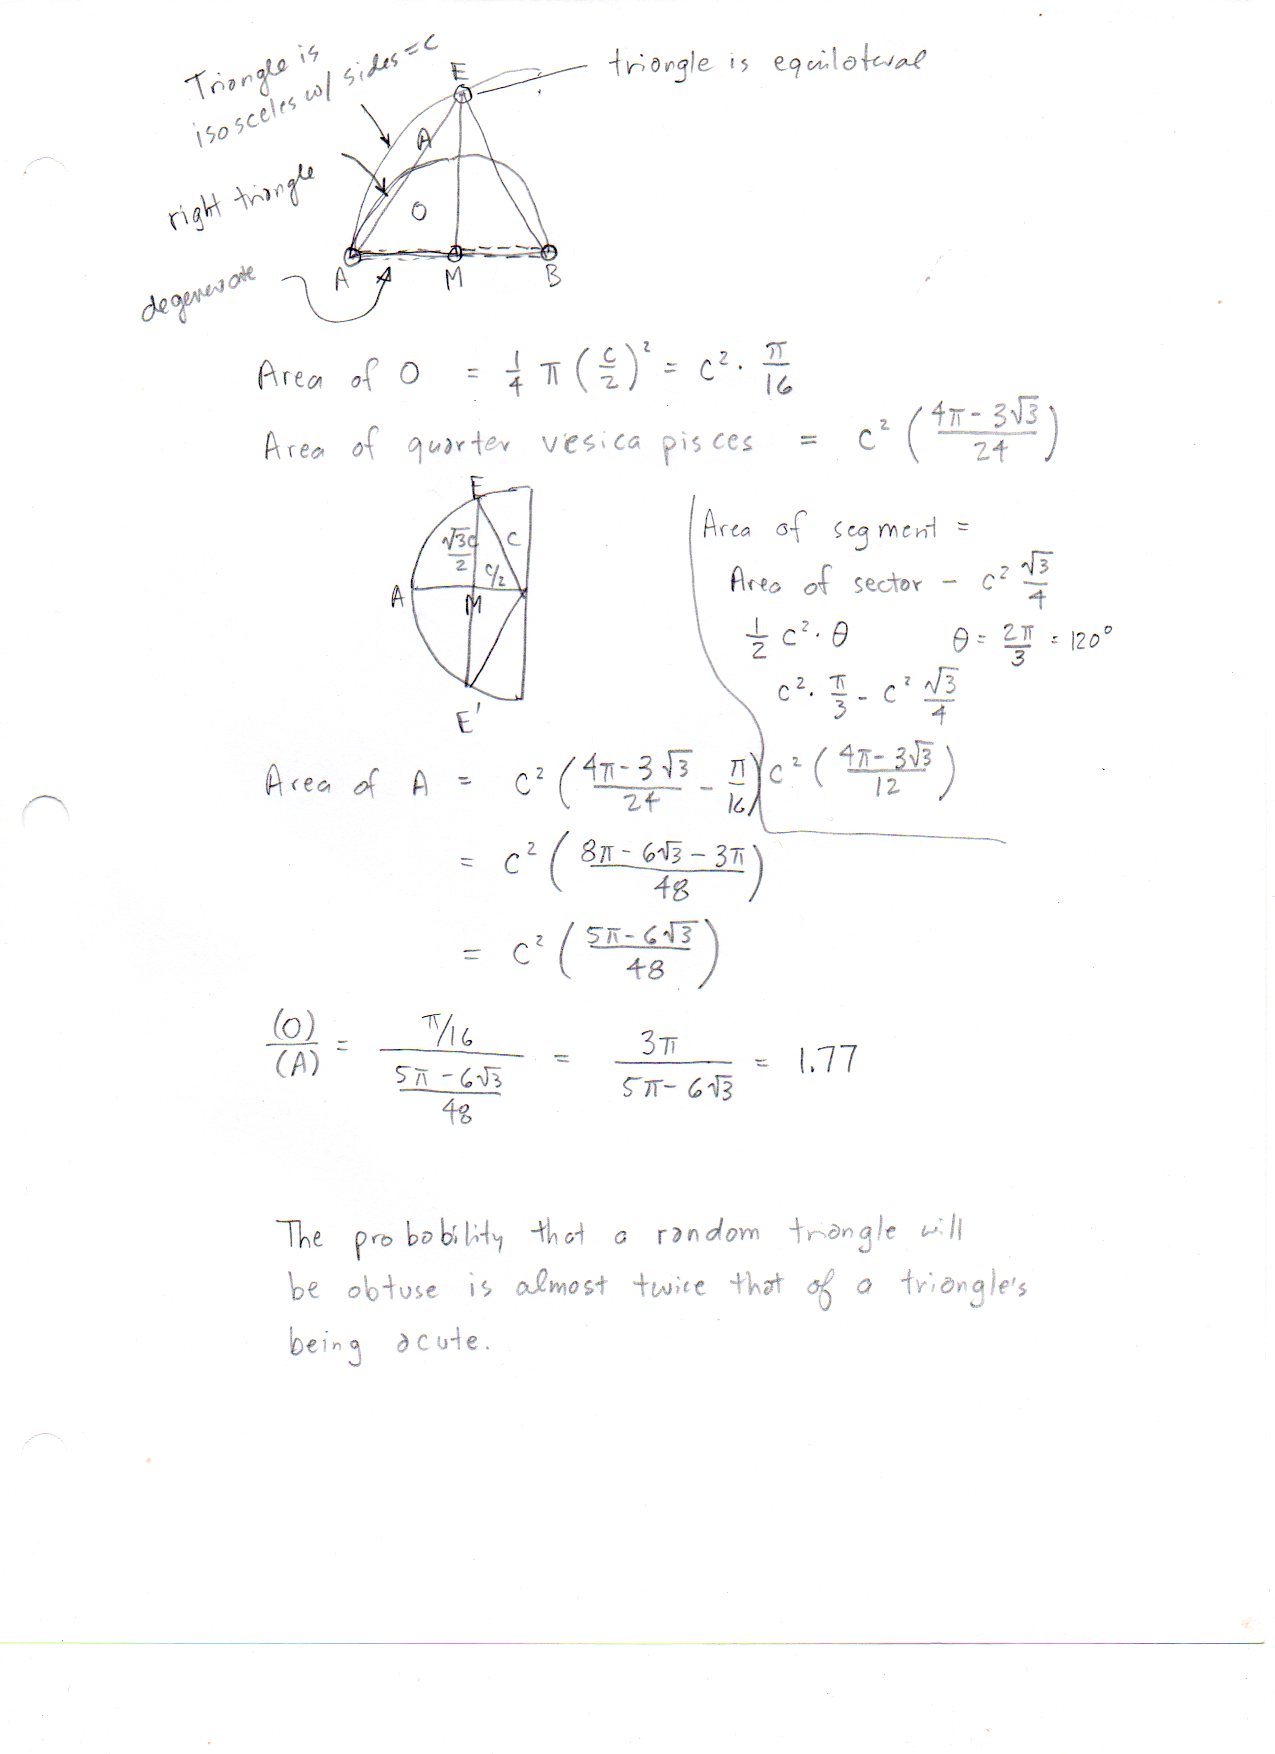 Triangle is
isosceles w/ sides = c
E
triangle is equilateral
A
right triangle
O
A M B
degenerate
Area of O = 1/4 π (c/2)² = c² · π/16
Area of quarter vesica pisces = c² ((4π - 3√3)/24)
E
√3c/2 c
c/2
A M
E'
Area of segment =
Area of sector - c² √3/4
1/2 c² · θ θ = 2π/3 = 120°
c² · π/3 - c² √3/4
c² ((4π - 3√3)/12)
Area of A = c² ((4π - 3√3)/24 - π/16)
= c² ((8π - 6√3 - 3π)/48)
= c² ((5π - 6√3)/48)
(O)/(A) = (π/16)/((5π - 6√3)/48) = 3π/(5π - 6√3) = 1.77
The probability that a random triangle will
be obtuse is almost twice that of a triangle's
being acute.